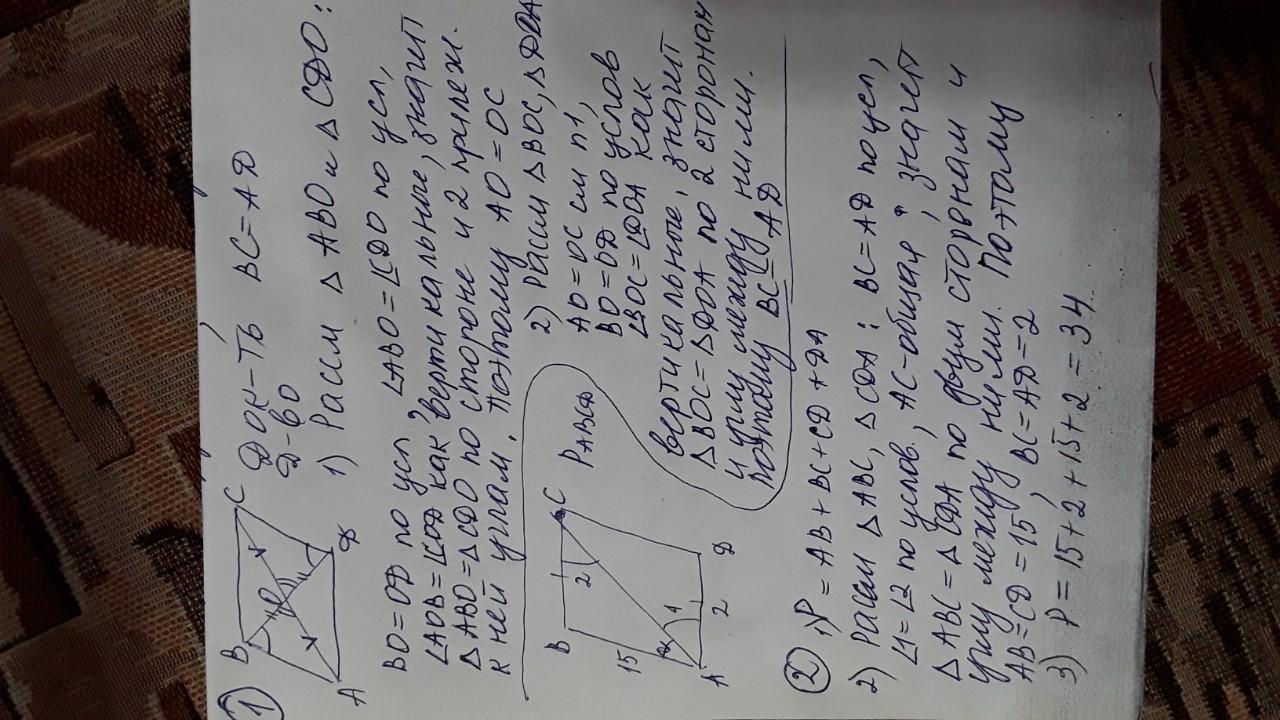 1)
B
C
O
A
D
Док-ть BC=AD
Д-во
1) Рассм △ABO и △CDO:
BO=OD по усл ∠ABO=∠CDO по усл,
∠AOB=∠COD как вертикальные, значит
△ABO=△CDO по стороне и 2 прилеж.
к ней углам, поэтому AO=OC
2) Рассм △BOC, △DOA
AO=OC см п1,
BO=OD по услов
∠BOC=∠DOA как
вертикальные, значит
△BOC=△DOA по 2 сторонам
и углу между ними.
поэтому BC=AD
B
C
P ABCD
2
15
1
A
2
D
2) 1) P=AB+BC+CD+DA
2) Рассм △ABC, △CDA: BC=AD по усл,
∠1=∠2 по услов, AC-общая, значит
△ABC=△CDA по двум сторонам и
углу между ними. Поэтому
AB=CD=15, BC=AD=2
3) P=15+2+15+2=34